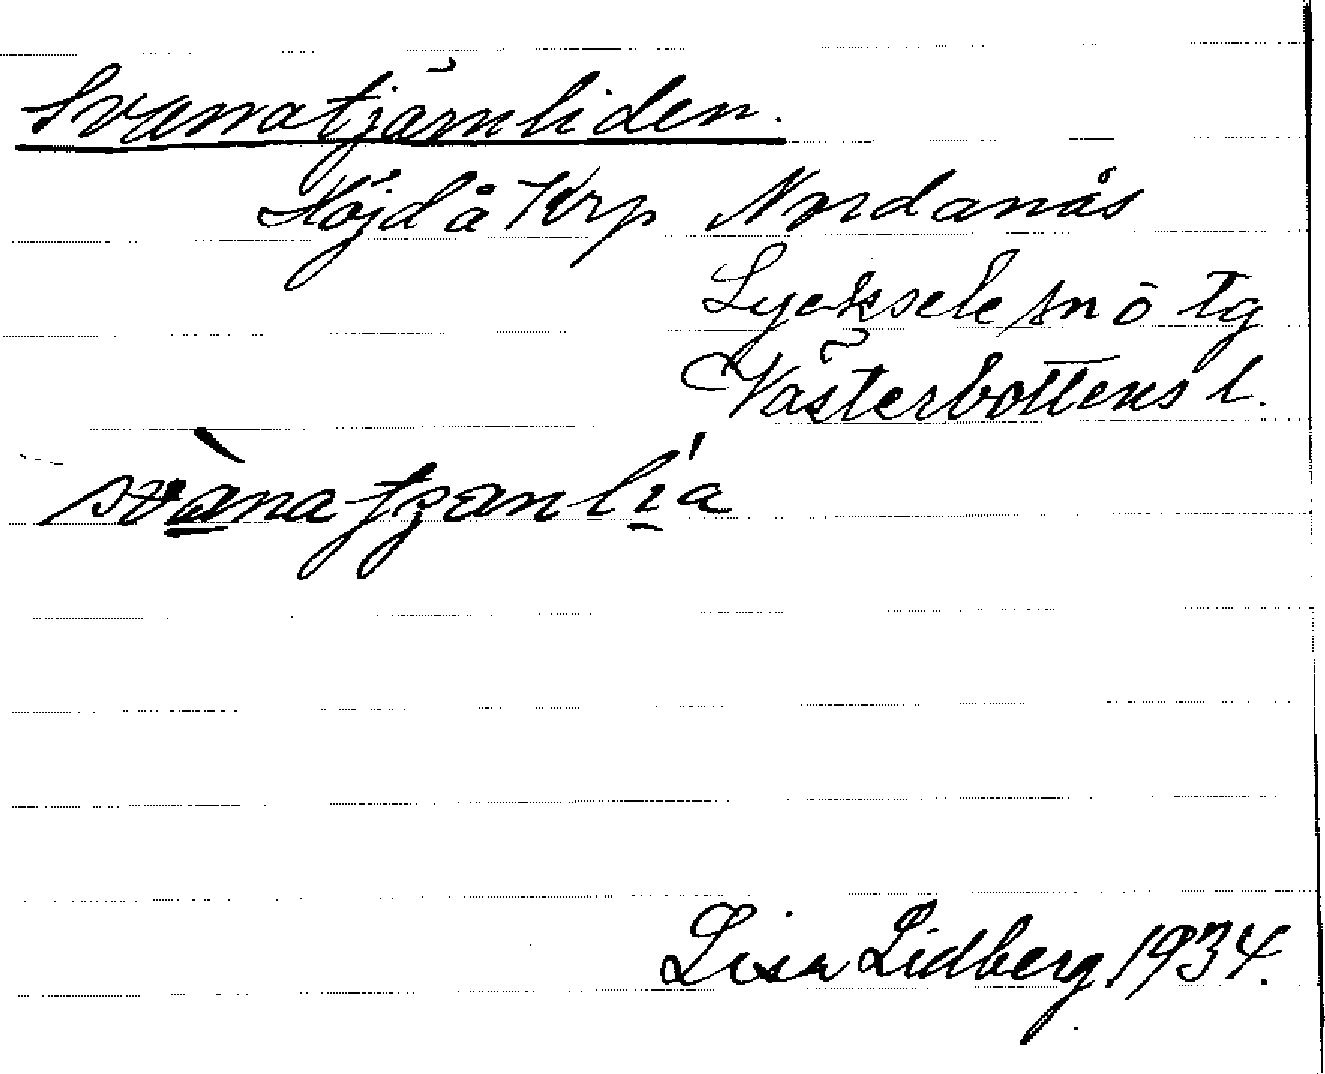 Svanatjärnliden.
Höjd å Krp Nordanås
Lycksele sn o tg
Västerbottens l.
svànatjanlía
Lisa Lidberg 1934.